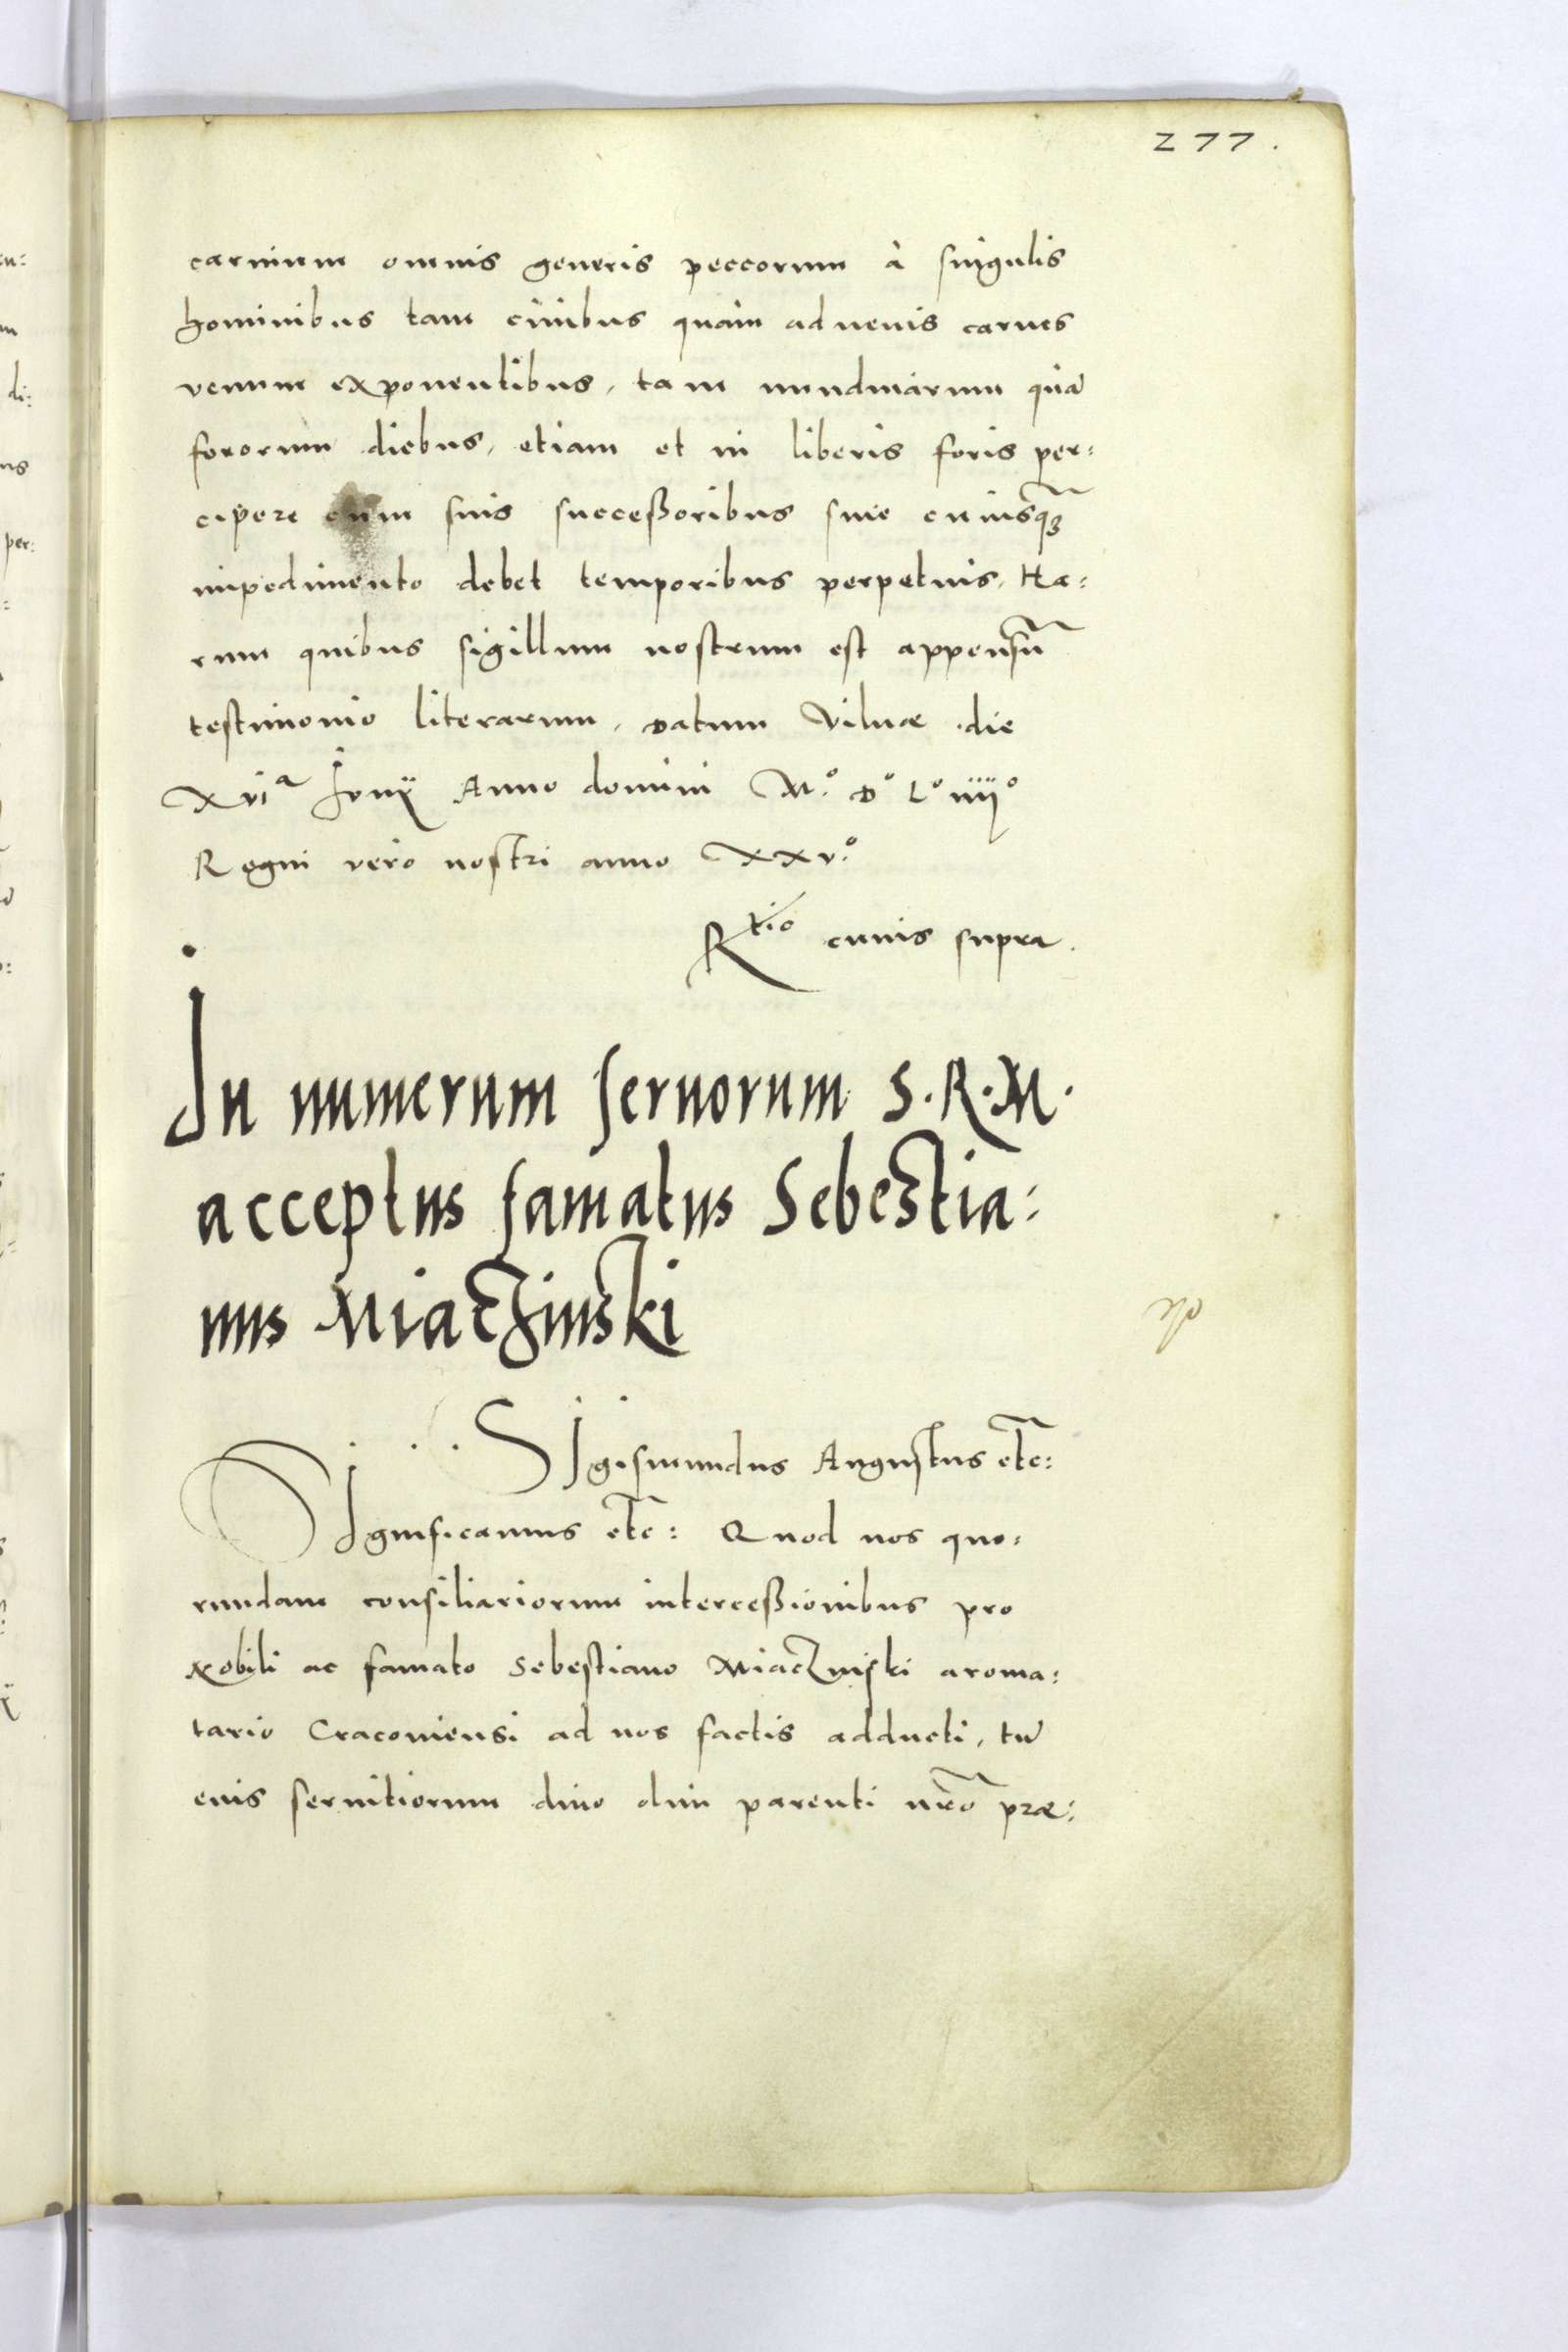 277.
carnium omnis generis peccorum à singulis
hominibus tam ciuibus quàm aduenis carnes
venum exponentibus, tam nundinarum quā
fororum diebus, etiam et in liberis foris per:
cipere cum suis succeßoribus sine cuiusq3
impedimento debet temporibus perpetuis. Ha:
rum quibus sigillum nostrum est appensū
testimonio literarum. Datum Vilnæ die
XVIª Junij Anno domini M.º Dº Lº iiijº
Regni vero nostri anno XXV.º
Rtio cuius supra.
In numerum seruorum S.R.M.
acceptus famatus Sebestia:
nus Miaczinski
Sigismundus Augustus etc:
Significamus etc: Quod nos quo:
rundam consiliariorum interceßionibus pro
Nobili ac famato Sebestiano Miaczinski aroma:
tario Cracouiensi ad nos factis adducti, tū
eius seruitiorum diuo olim parenti nr̄o præ: